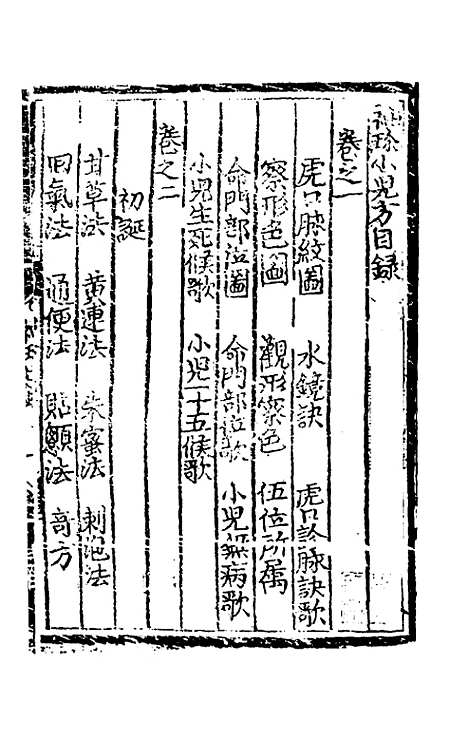 袖珍小兒方目録
卷之一
虎口脉紋圖 水鏡訣 虎口診脉訣歌
察形色圖 觀形察色 伍位所属
命門部位圖 命門部位歌 小兒無病歌
小兒生死候歌 小兒二十五候歌
卷之二
初誕
甘草法 黄連法 朱蜜法 刺泡法
回氣法 通便法 貼顖法 奇方